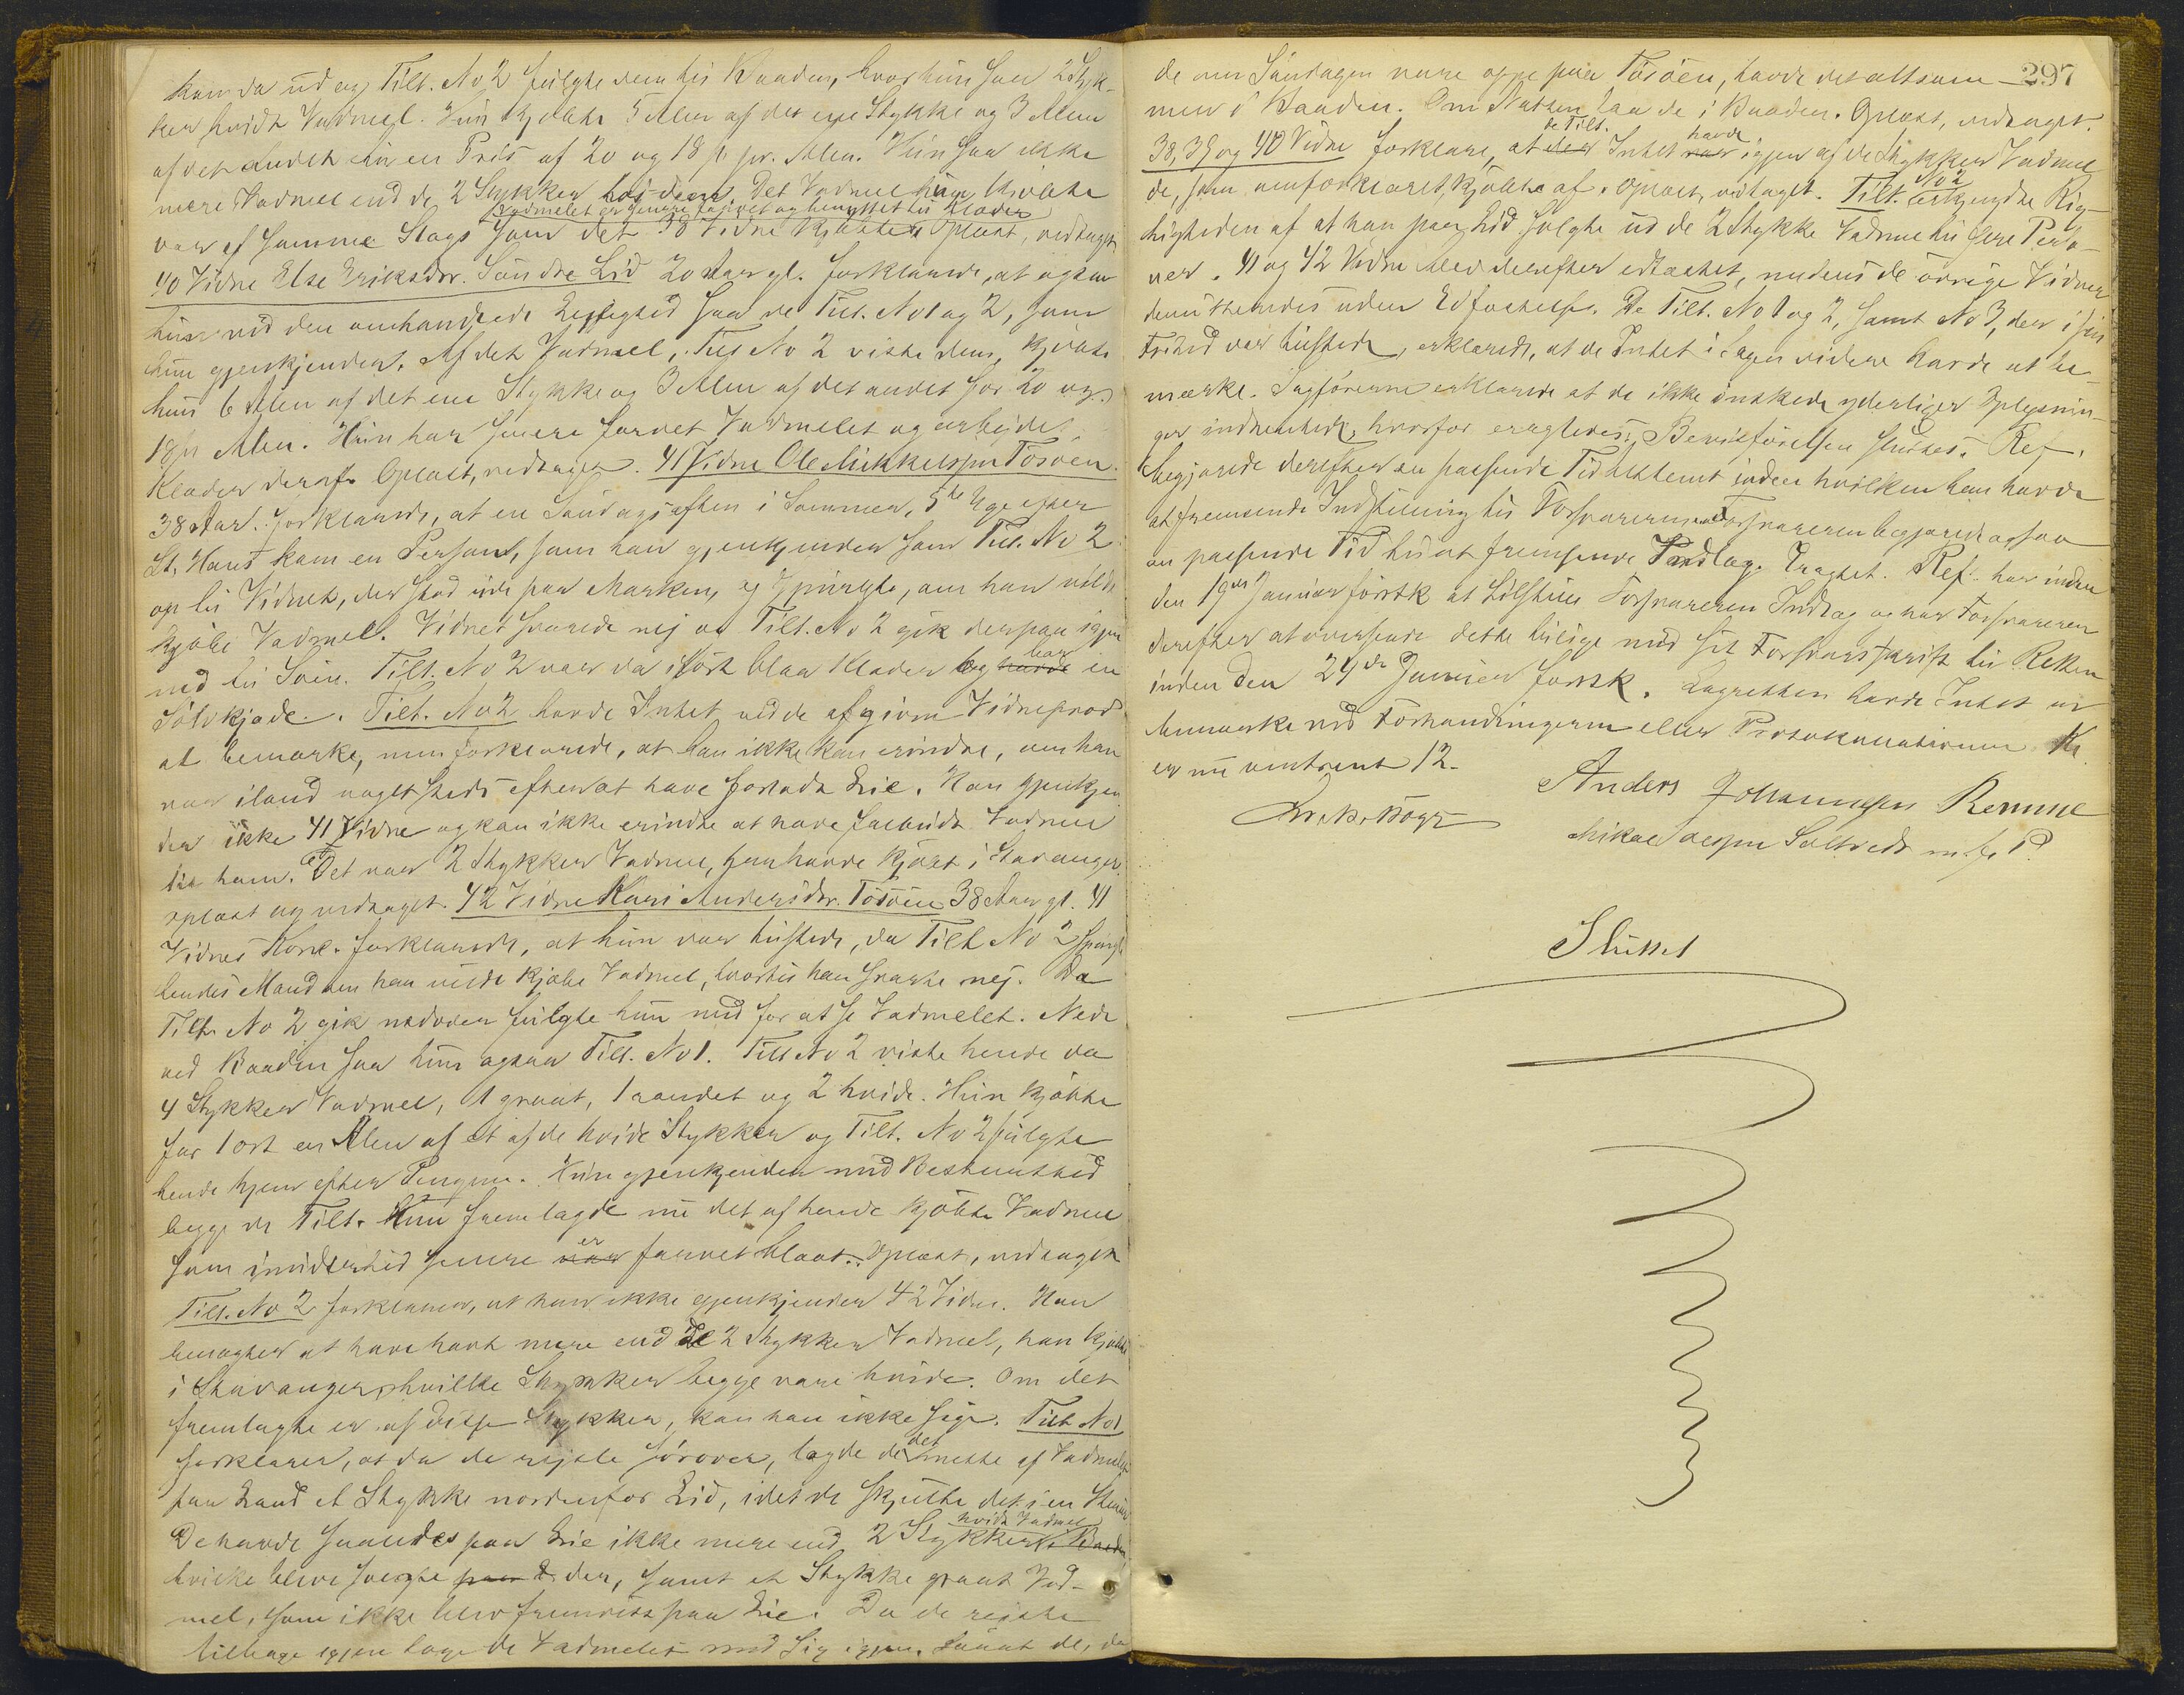 kom da ud og Tilt. No 2 fulgte dem til Baaden, hvor hun saa 2 Styk-
ker hvidt Vadmel. Hun kjøbte 5 Alen af det ene Stykke og 3 Alen
af det andet til en Pris af 20 og 18 sk. pr. Alen. Hun saa ikke
mere Vadmel end de 2 Stykker hos dem. Det Vadmel hun kjøbte
Vadmelet er senere farvet og benyttet til Klæder
var af samme Slags som det 38 Vidne kjøbte. Oplæst, vedtaget.
40 Vidne Else Eriksdtr. Søndre Lid 20 Aar gl. forklarede, at ogsaa
hun ved den omhandlede Leilighed saa de Tilt. No 1 og 2, som
hun gjenkjender. Af det Vadmel, Tilt No 2 viste dem, kjøbte
hun 6 Alen af det ene Stykke og 3 Alen af det andet for 20 og
18 sk Alen. Hun har senere farvet Vadmelet og arbeidet
Klæder deraf. Oplæst, vedtaget. 41 Vidne Ole Mikkelsen Tøsøen
38 Aar. forklarede, at en Søndagsaften i Sommer, 5te Uge efter
St. Hans kom en Person, som han gjenkjender som Tilt. No 2
op til Vidnet, der stod ude paa Marken, og spurgte, om han vilde
kjøbe Vadmel. Vidnet svarede nej og Tilt. No 2 gik derpaa igjen
ned til Søen. Tilt. No 2 var da iført blaa Klæder og havde bar en
Sølvkjæde. Tilt. No 2 havde Intet ved de afgivne Vidneprov
at bemærke, men forklarede, at han ikke kan erindre, om han
var iland noget Steds efterat have forladt Lie. Han gjenkjen-
der ikke 41 Vidne og kan ikke erindre at have falbudt Vadmel
til ham. Det var 2 Stykker Vadmel, han havde kjøbt i Stavanger.
oplæst og vedtaget. 42 Vidne Kari Andersdtr. Tøsøen 38 Aar gl. 41
Vidnes Kone. forklarede, at hun var tilstede, da Tilt No 2 spurgte
hendes Mand om han vilde kjøbe Vadmel, hvortil han svarte nej. Da
Tilt. No 2 gik nedover fulgte hun med for at se Vadmelet. Nede
ved Baaden saa hun ogsaa Tilt. No 1. Tilt No 2 viste hende da
4 Stykker Vadmel, 1 graat, 1 randet og 2 hvide. Hun kjøbte
for 1 ort en Alen af et af de hvide Stykker og Tilt. No 2 fulgte
hende hjem efter Pengene. Hun gjenkjender med Bestemthed
begge de Tilt. Hun fremlagde nu det af hende kjøbte Vadmel
som imidlertid senere var er farvet blaat. Oplæst, vedtaget
Tilt. No 2 forklarer, at han ikke gjenkjender 42 Vidne. Han
benægter at have havt mere end de 2 Stykker Vadmel, han kjøbte
i Stavanger, hvilke Stykker begge vare hvide. Om det
fremlagte er af disse Stykker, kan han ikke sige. Tilt No 1
forklarer, at da de rejste sørover, lagde de det meste af Vadmelet
paa Land et Stykke nordenfor Lid, idet de skjulte det i en Stenur.
De havde saaledes paa Lie ikke mere end 2 Stykker hvidt Vadmel i Baaden,
hvilke bleve solgte paa L der, samt et Stykke graat Vad-
mel, som ikke blev fremvist paa Lie. Da de rejste
tilbage igjen toge de Vadmelet med sig igjen, saaat de, da
297
de om Søndagen vare oppe paa Tøsøen, havde det altsam-
men i Baaden. Om Natten laa de i Baaden. Oplæst, vedtaget.
38, 39 og 40 Vidne forklare, at der de Tilt. Intet var havde igjen af de Stykker Vadmel
de, som omforklaret, kjøbte af. Oplæst, vedtaget. Tilt. No 2 erkjendte Rig-
tigheden af at han paa Lid solgte ud de 2 Stykke Vadmel til flere Perso-
ner. 41 og 42 Vidne blev derefter edfæstet, medens de øvrige Vidner
demitteredes uden Edfæstelse. De Tilt. No 1 og 2, samt No 3, der i sin
Frihed var tilstede, erklærede, at de Intet i Sagen videre havde at be-
mærke. Sagførerne erklærede at de ikke ønskede yderligere Oplysnin-
ger indhentede, hvorfor eragtedes: Bevisførelsen sluttes. Ref.
begjærede derefter en passende Tid bestemt inden hvilken han havde
at fremsende Indstilling til Forsvareren. Forsvareren begjærede ogsaa
en passende Tid til at fremsende Indlæg. Eragtet. Ref. har inden
den 19de Januar førstk at tilstille Forsvareren Indlæg og har Forsvareren
derefter at oversende dette tillige med sit Forsvarsskrift til Retten
inden den 29de Januar førstk. Lagretten havde Intet at
bemærke ved Forhandlingerne eller Protokollationen. Kl.
er nu omtrent 12.
Anders Johannesen Remme
Mikael Aaesen Soltvedt m. f. P.
Sluttet